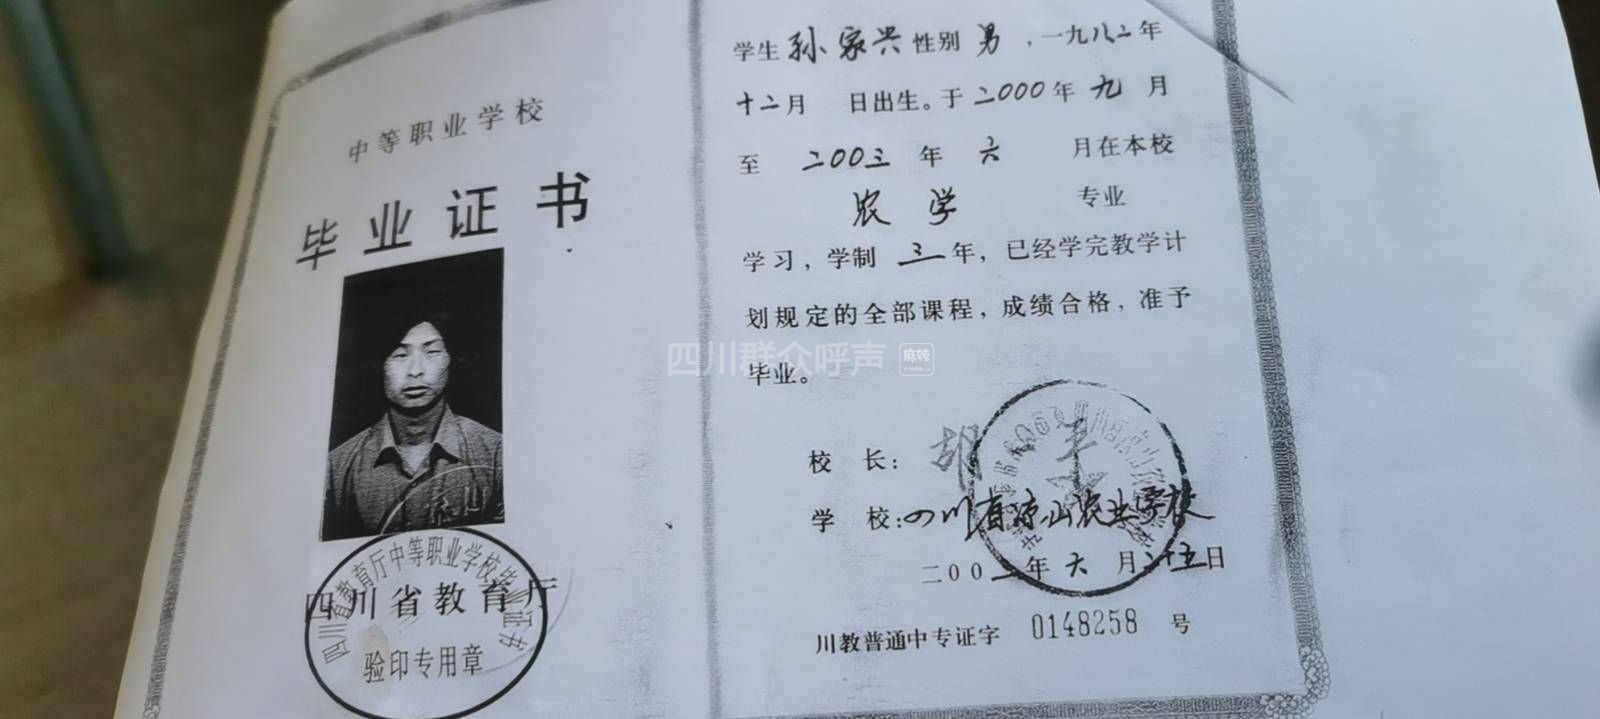 中等职业学校
毕业证书
四川省教育厅中等职业学校毕业证书
四川省教育厅
验印专用章
学生 孙家兴 性别 男 ，一九八二年
十二月 日出生。于二000年九月
至 二00三 年 六 月在本校
农学 专业
学习，学制 三 年，已经学完教学计
划规定的全部课程，成绩合格，准予
毕业。
四川群众呼声 麻辣
校 长：胡
学 校：四川省凉山农业学校
年六月二十五日
川教普通中专证字 0148258 号